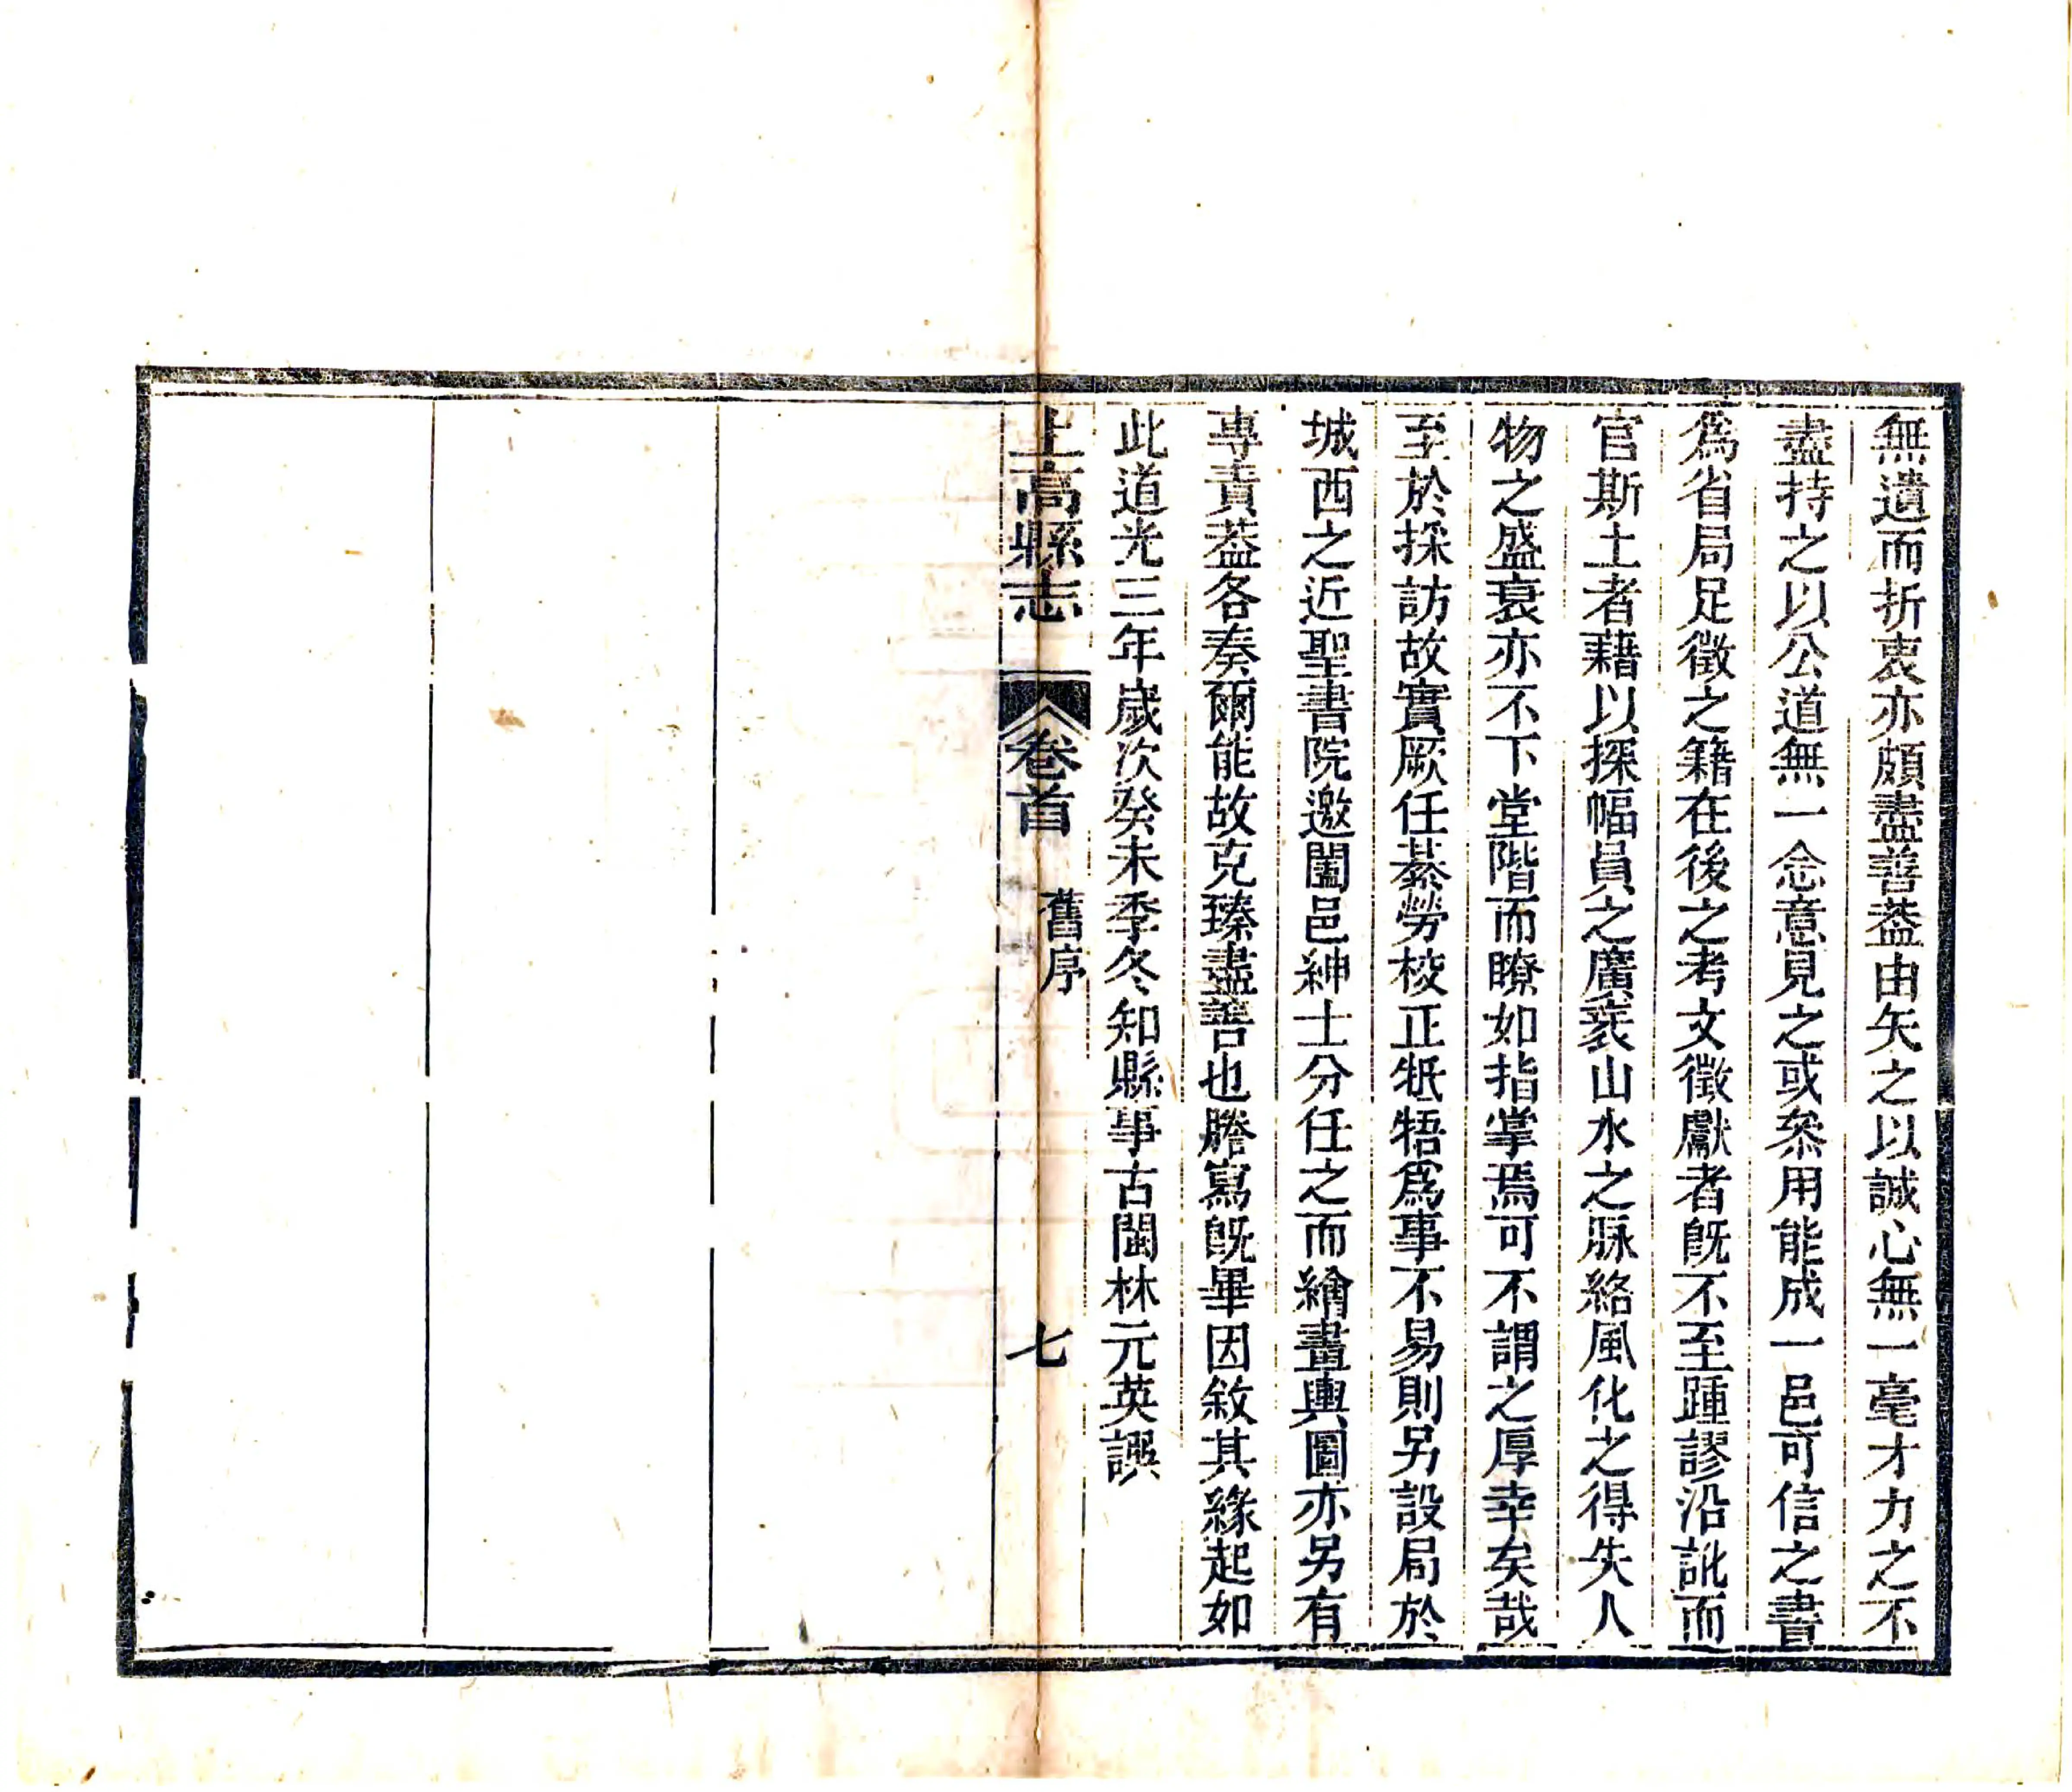 無遺而折衷亦頗盡善葢由矢之以誠心無一毫才力之不
盡持之以公道無一念意見之或叅用能成一邑可信之書
爲省局足徵之籍在後之考文徵獻者旣不至踵謬沿訛而
官斯土者藉以探幅員之廣袤山水之脈絡風化之得失人
物之盛衰亦不下堂階而瞭如指掌焉可不謂之厚幸矣哉
至於採訪故實厥任綦勞校正牴牾爲事不易則另設局於
城西之近聖書院邀闔邑紳士分任之而繪畫輿圖亦另有
專責葢各奏爾能故克臻盡善也謄寫旣畢因敘其緣起如
此道光三年歲次癸未季冬知縣事古閩林元英譔
上高縣志 卷首 舊序 七